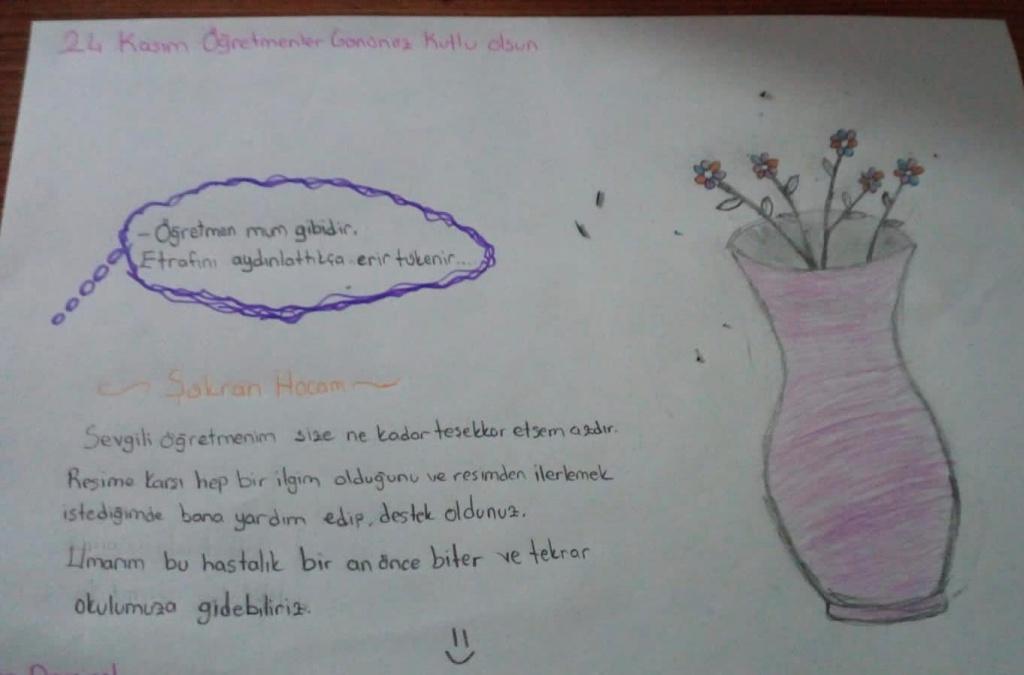 24 Kasım Öğretmenler Gününüz Kutlu olsun
- Öğretmen mum gibidir.
Etrafını aydınlattıkça erir tükenir...
Şükran Hocam
Sevgili öğretmenim size ne kadar teşekkür etsem azdır.
Resime karşı hep bir ilgim olduğunu ve resimden ilerlemek
istediğimde bana yardım edip, destek oldunuz.
Umarım bu hastalık bir an önce biter ve tekrar
okulumuza gidebiliriz.